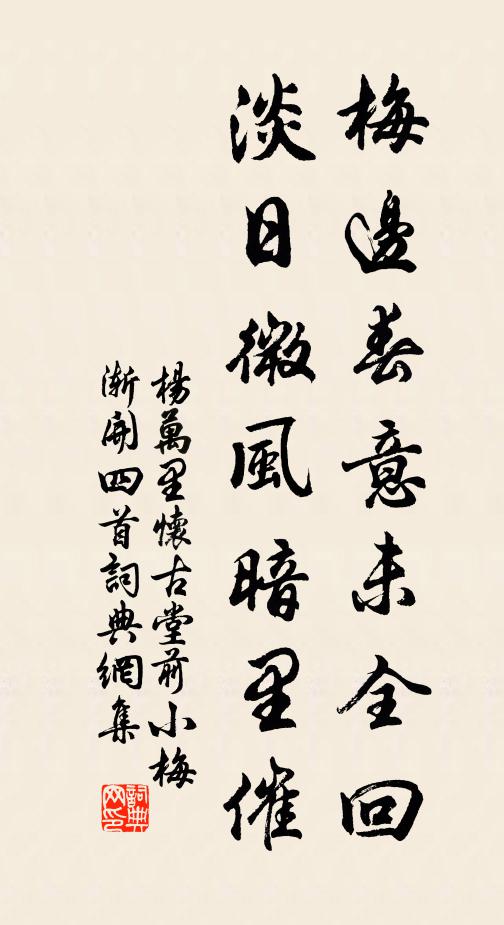 梅邊春意未全回
淡日微風暗里催
楊萬里懷古堂前小梅
漸開四首詞典網集
詞典网印